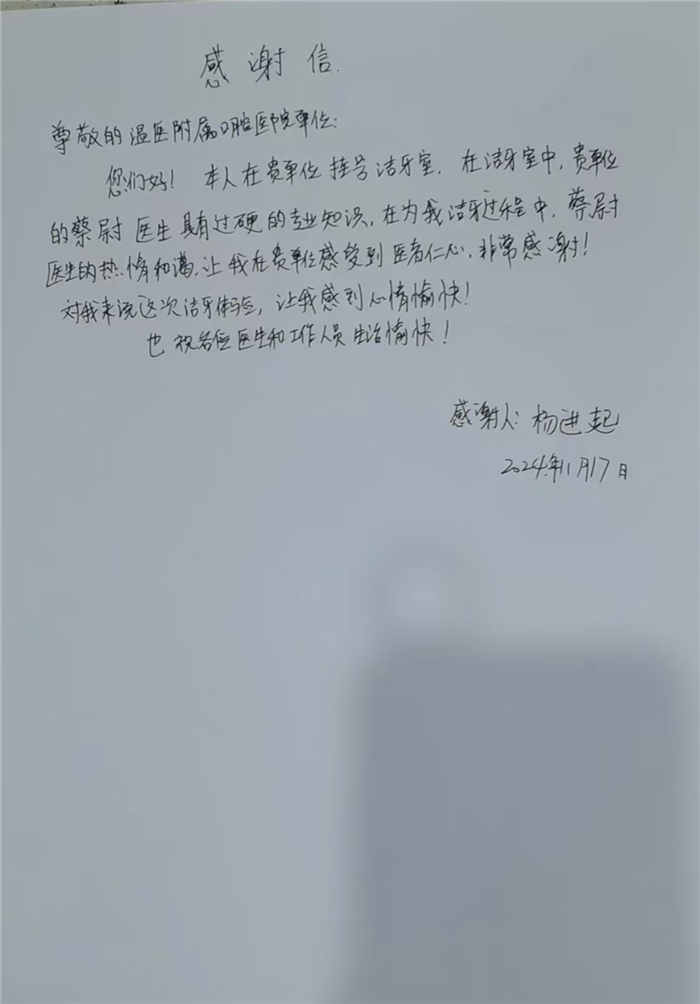 感谢信.
尊敬的温医附属口腔医院单位:
您们好! 本人在贵单位挂号洁牙室. 在洁牙室中, 贵单位
的蔡尉医生具有过硬的专业知识, 在为我洁牙过程中, 蔡尉
医生的热情和蔼, 让我在贵单位感受到医者仁心, 非常感谢!
对我来说这次洁牙体验, 让我感到心情愉快!
也祝各位医生和工作人员生活愉快!
感谢人: 杨进起
2024年11月17日